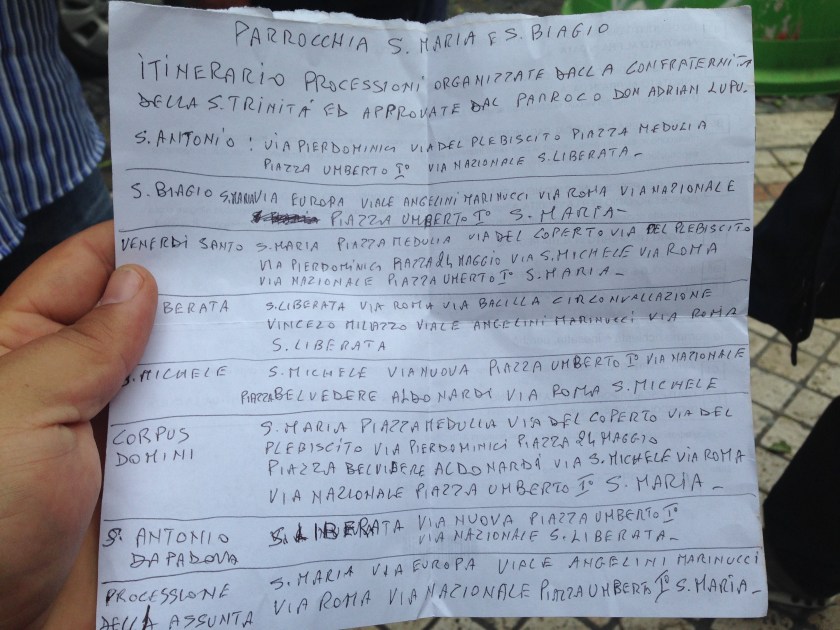 PARROCCHIA S. MARIA E S. BIAGIO
ITINERARIO PROCESSIONI ORGANIZZATE DALLA CONFRATERNITA
DELLA S. TRINITÁ ED APPROVATE DAL PARROCO DON ADRIAN LUPU.
S. ANTONIO : VIA PIERDOMINICI VIA DEL PLEBISCITO PIAZZA MEDULIA
PIAZZA UMBERTO I° VIA NAZIONALE S. LIBERATA –
S. BIAGIO S. MARIA VIA EUROPA VIALE ANGELINI MARINUCCI VIA ROMA VIA NAZIONALE
PIAZZA UMBERTO I° S. MARIA –
VENERDI SANTO S. MARIA PIAZZA MEDULIA VIA DEL COPERTO VIA DEL PLEBISCITO
VIA PIERDOMINICI PIAZZA 24 MAGGIO VIA S. MICHELE VIA ROMA
VIA NAZIONALE PIAZZA UMERTO I° S. MARIA –
BERATA S. LIBERATA VIA ROMA VIA BALILLA CIRCONVALLAZIONE
VINCEZO MILAZZO VIALE ANGELINI MARINUCCI VIA ROMA
S. LIBERATA
S. MICHELE S. MICHELE VIA NUOVA PIAZZA UMBERTO I° VIA NAZIONALE
PIAZZA BELVEDERE ALDO NARDI VIA ROMA S. MICHELE
CORPUS DOMINI S. MARIA PIAZZA MEDULLIA VIA DEL COPERTO VIA DEL
PLEBISCITO VIA PIERDOMINICI PIAZZA 24 MAGGIO
PIAZZA BELVIDERE ALDO NARDI VIA S. MICHELE VIA ROMA
VIA NAZIONALE PIAZZA UMBERTO I° S. MARIA –
S. ANTONIO DA PADOVA S. LIBERATA VIA NUOVA PIAZZA UMBERTO I°
VIA NAZIONALE S. LIBERATA –
PROCESSIONE DELLA ASSUNTA S. MARIA VIA EUROPA VIALE ANGELINI MARINUCCI
VIA ROMA VIA NAZIONALE PIAZZA UMBERTO I° S. MARIA –